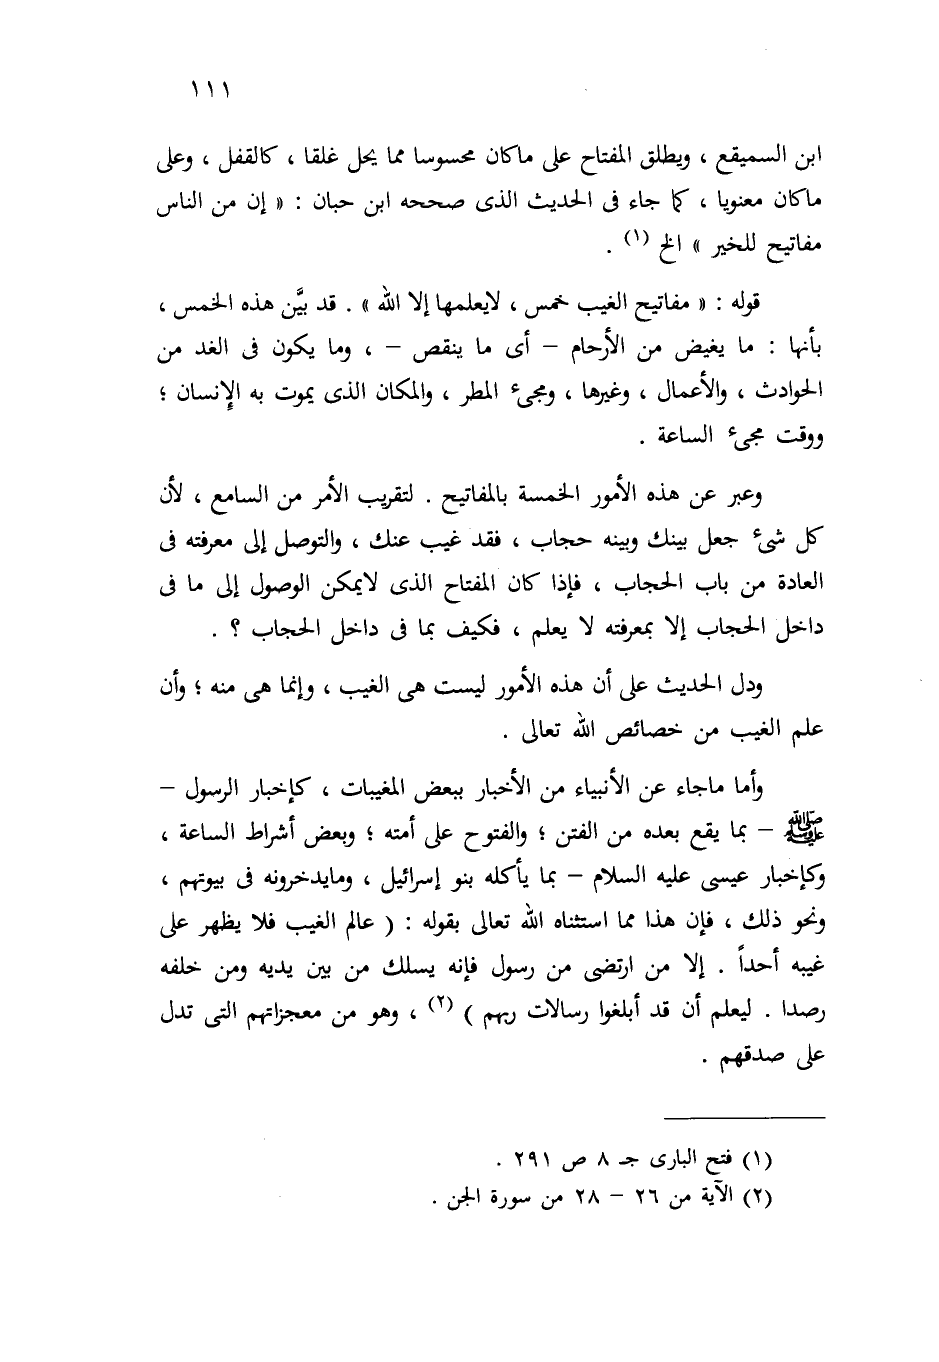 ١١١
ابن السميقع ، ويطلق المفتاح على ماكان محسوسا مما يحل غلقا ، كالقفل ، وعلى
ماكان معنويا ، كما جاء فى الحديث الذى صححه ابن حبان : « إن من الناس
مفاتيح للخير » الخ (١) .
قوله : « مفاتيح الغيب خمس ، لايعلمها إلا الله » . قد بيَّن هذه الخمس ،
بأنها : ما يغيض من الأرحام – أى ما ينقص – ، وما يكون فى الغد من
الحوادث ، والأعمال ، وغيرها ، ومجىء المطر ، والمكان الذى يموت به الإنسان ؛
ووقت مجىء الساعة .
وعبر عن هذه الأمور الخمسة بالمفاتيح . لتقريب الأمر من السامع ، لأن
كل شىء جعل بينك وبينه حجاب ، فقد غيب عنك ، والتوصل إلى معرفته فى
العادة من باب الحجاب ، فإذا كان المفتاح الذى لايمكن الوصول إلى ما فى
داخل الحجاب إلا بمعرفته لا يعلم ، فكيف بما فى داخل الحجاب ؟ .
ودل الحديث على أن هذه الأمور ليست هى الغيب ، وإنما هى منه ؛ وأن
علم الغيب من خصائص الله تعالى .
وأما ماجاء عن الأنبياء من الأخبار ببعض المغيبات ، كإخبار الرسول –
ﷺ – بما يقع بعده من الفتن ؛ والفتوح على أمته ؛ وبعض أشراط الساعة ،
وكإخبار عيسى عليه السلام – بما يأكله بنو إسرائيل ، ومايدخرونه فى بيوتهم ،
ونحو ذلك ، فإن هذا مما استثناه الله تعالى بقوله : ( عالم الغيب فلا يظهر على
غيبه أحداً . إلا من ارتضى من رسول فإنه يسلك من بين يديه ومن خلفه
رصدا . ليعلم أن قد أبلغوا رسالات ربهم ) (٢) ، وهو من معجزاتهم التى تدل
على صدقهم .
(١) فتح البارى جـ ٨ ص ٢٩١ .
(٢) الآية من ٢٦ – ٢٨ من سورة الجن .